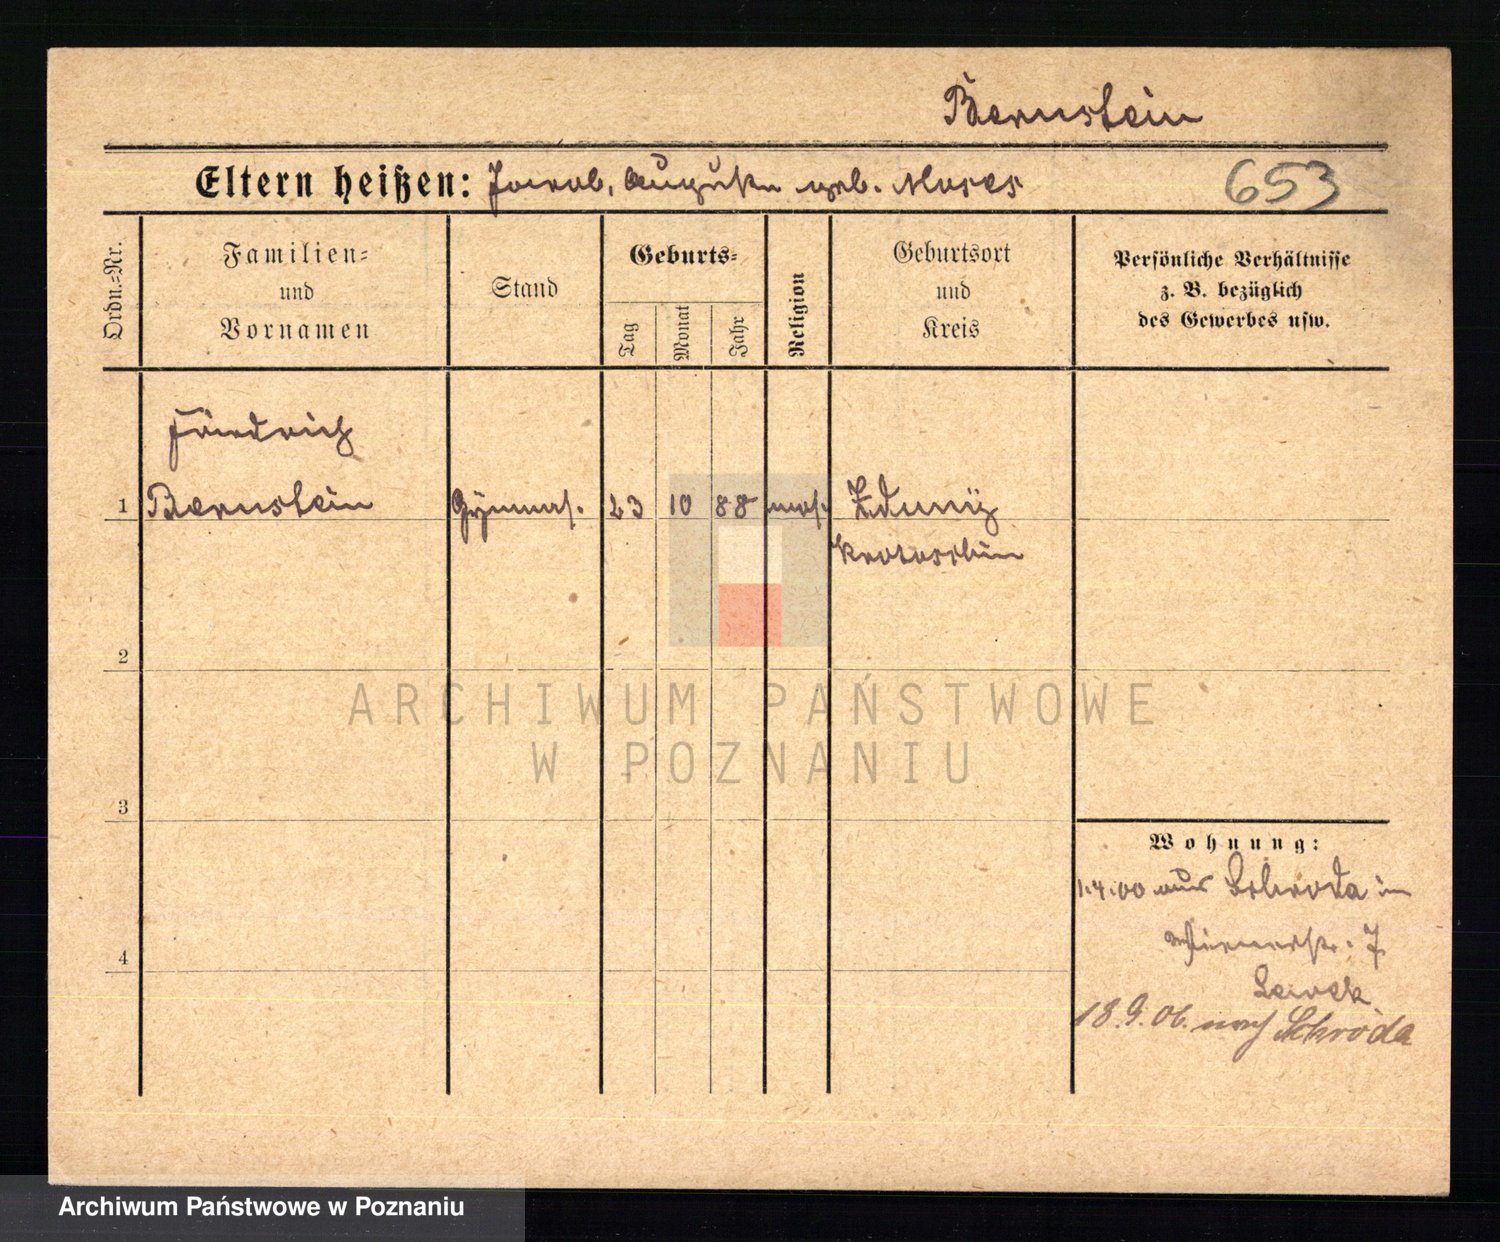 Bernstein
Eltern heißen: Jacob, Auguste geb. Moses
653
Ordn.-Nr.
Familien-
und
Vornamen
Stand
Geburts-
Tag
Monat
Jahr
Religion
Geburtsort
und
Kreis
Persönliche Verhältnisse
z. B. bezüglich
des Gewerbes usw.
Friedrich
1 Bernstein Gymnas. 23 10 88 mos. Zduny
Krotoschin
2
3
4
Wohnung:
1.4.00 aus Schroda in
7
18.9.06. nach Schroda
ARCHIWUM PAŃSTWOWE
W POZNANIU
Archiwum Państwowe w Poznaniu